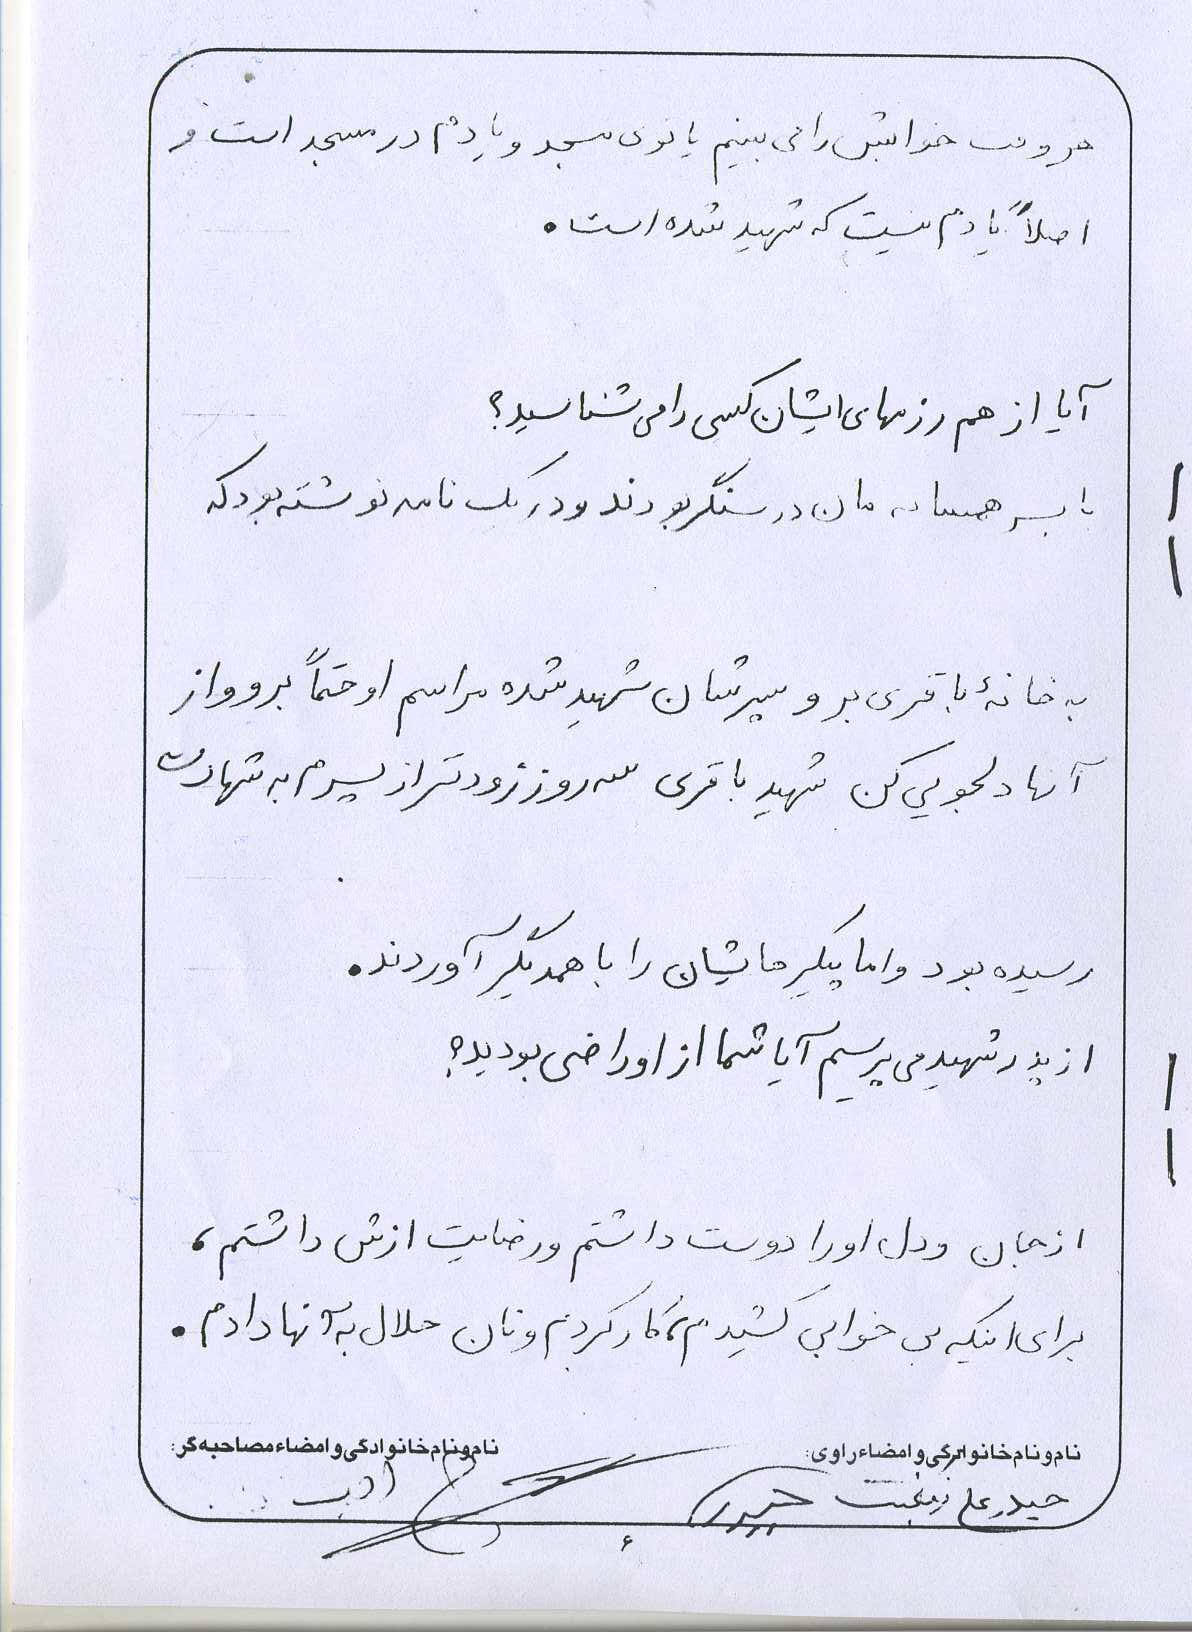 هر وقت خوابش را می بینم یا توی مسجد و یا دم در مسجد است و
اصلاً یادم نیست که شهید شده است.
آیا از هم رزمهای ایشان کسی را می شناسید؟
با پسر همسایه مان در سنگر بودند و در یک نامه نوشته بود که
به خانهٔ باقری برو پسرشان شهید شده مراسم او حتماً برو و از
آنها دلجویی کن شهید باقری سه روز زودتر از پسرم به شهادت
رسیده بود و اما پیکرهایشان را با همدیگر آوردند.
از پدر شهید می پرسیم آیا شما از او راضی بودید؟
از جان و دل او را دوست داشتم و رضایت ازش داشتم،
برای اینکه بی خوابی کشیدم، کار کردم و نان حلال به آنها دادم.
نام و نام خانوادگی و امضاء راوی:
نام و نام خانوادگی و امضاء مصاحبه گر:
حیدر علی
ادب
۶